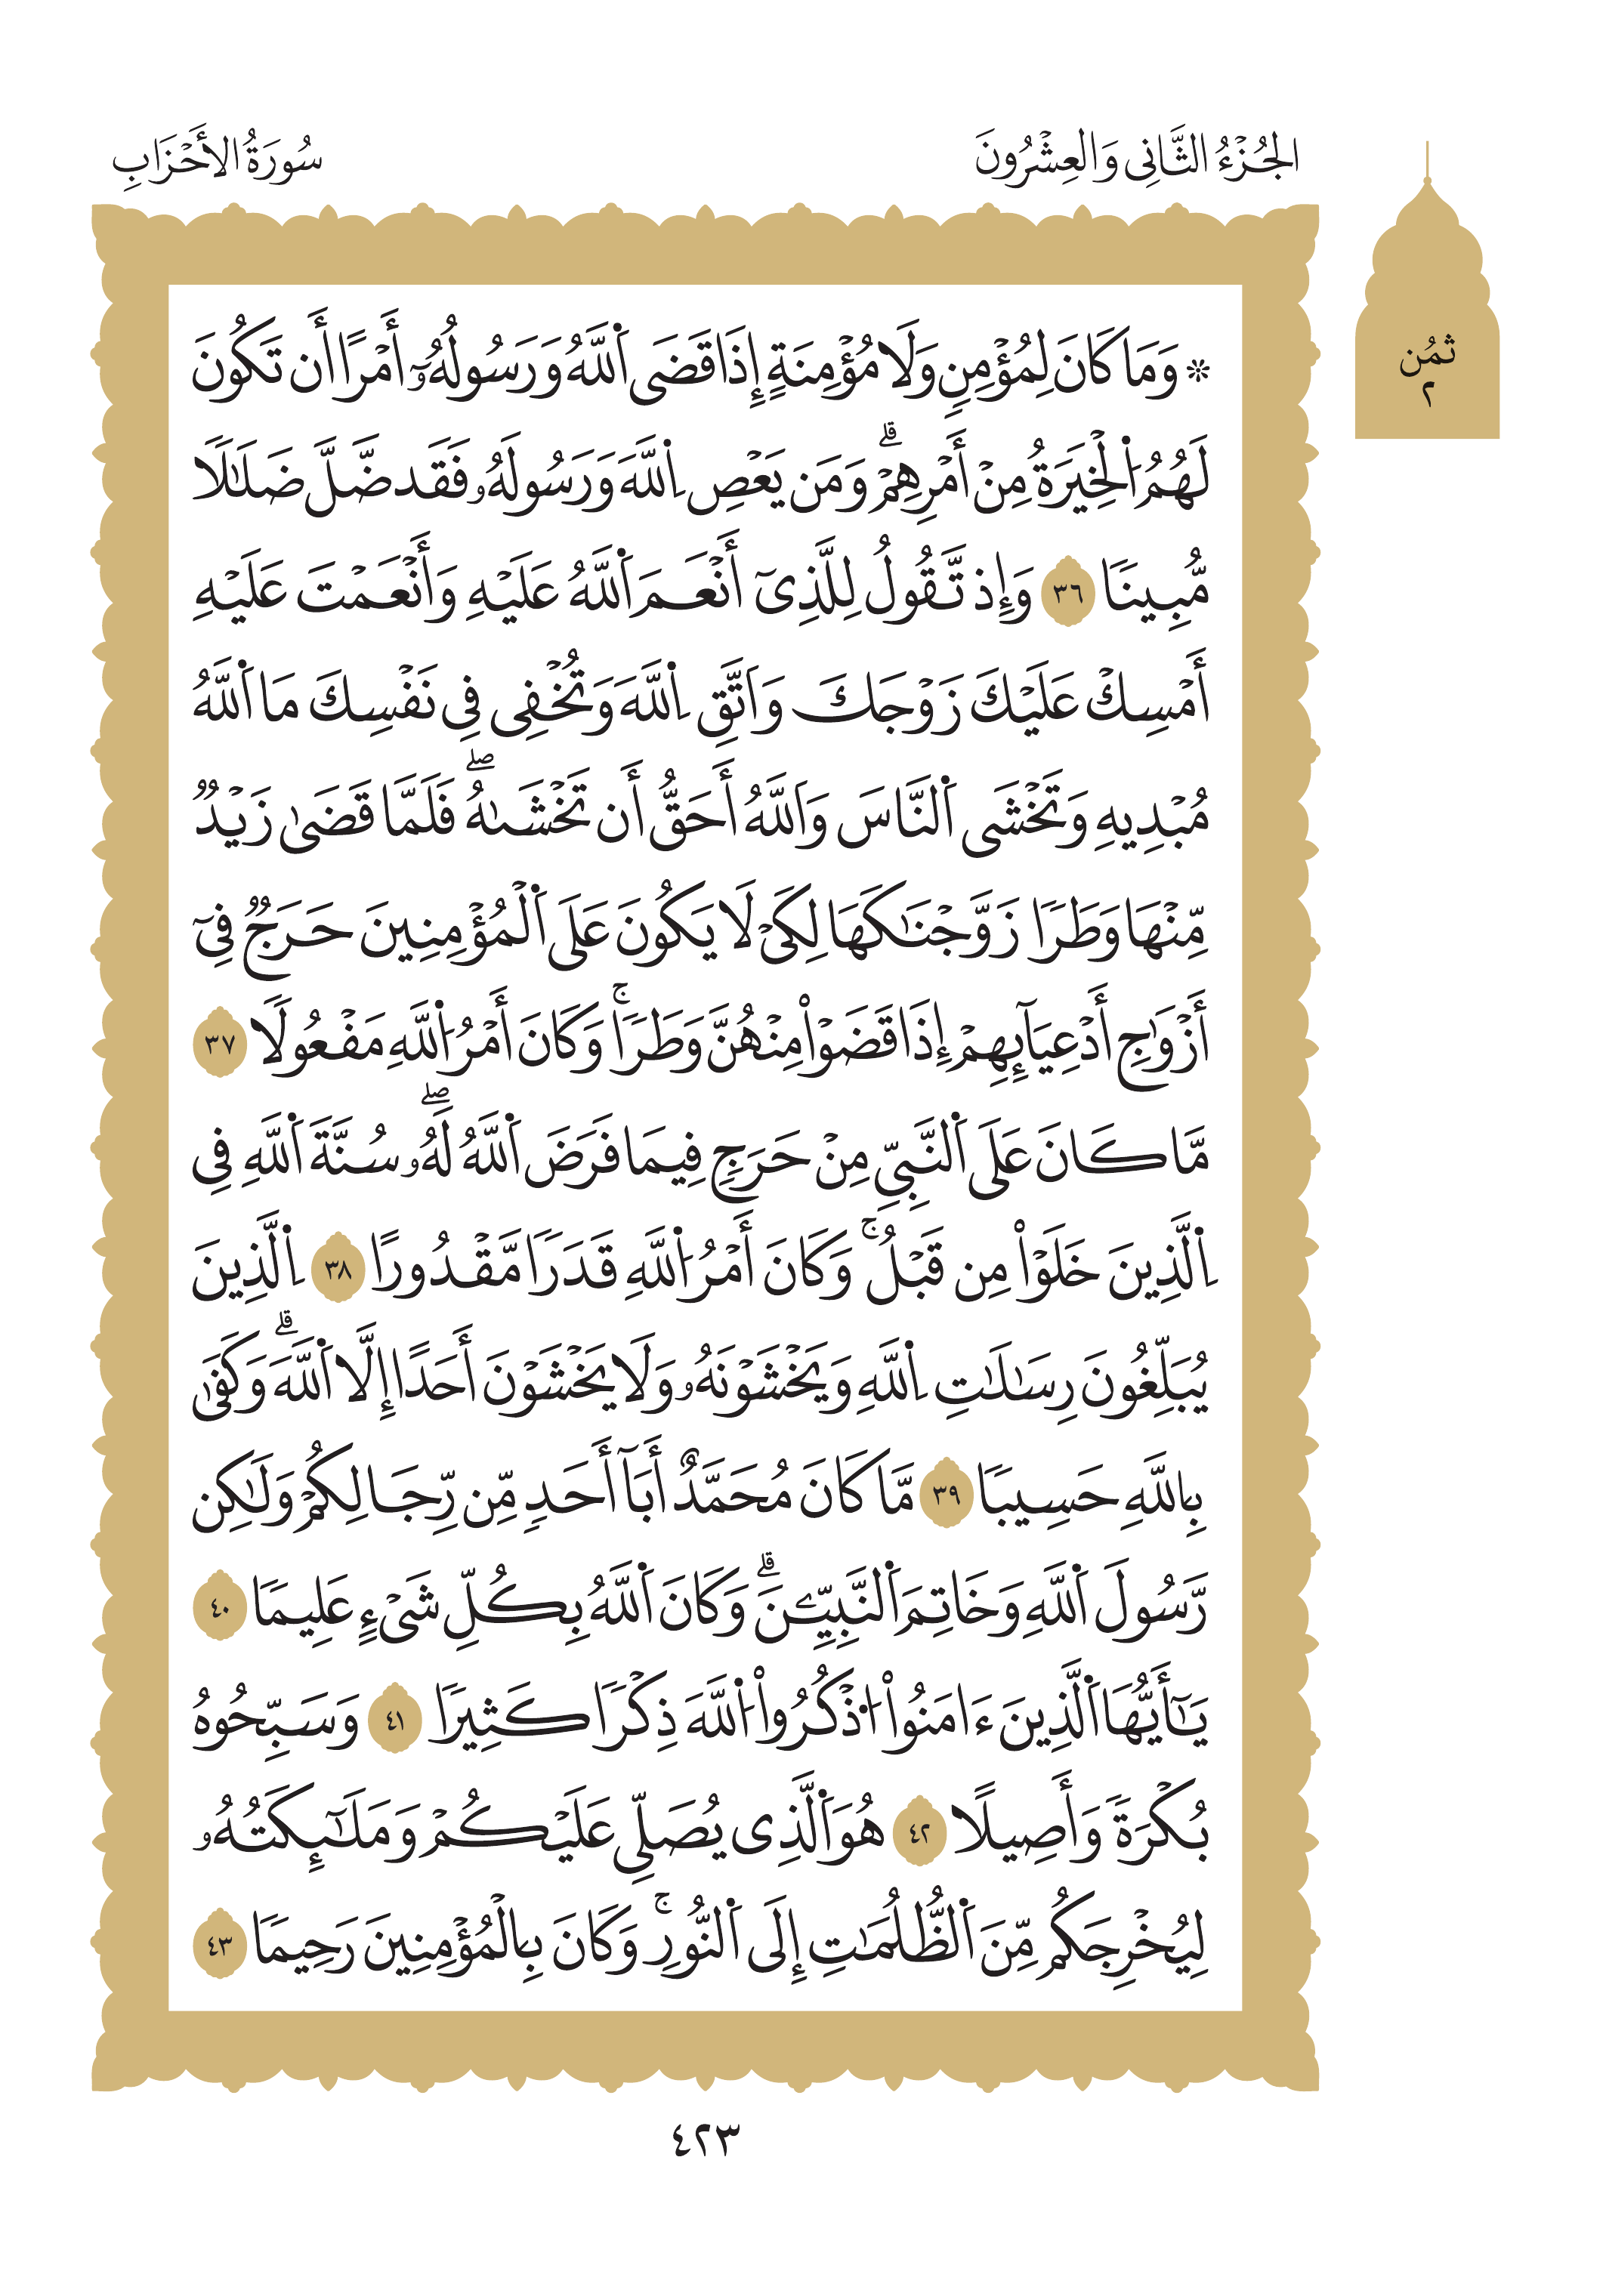 الجُزْءُ الثَّانِي وَالعِشْرُونَ
سُورَةُ الأَحْزَابِ
ثمُن
٢
۞ وَمَا كَانَ لِمُؤْمِنٍ وَلَا مُؤْمِنَةٍ إِذَا قَضَى اَ۬للَّهُ وَرَسُولُهُۥٓ أَمْرًا أَن تَكُونَ
لَهُمُ اُ۬لْخِيَرَةُ مِنْ أَمْرِهِمْۗ وَمَن يَعْصِ اِ۬للَّهَ وَرَسُولَهُۥ فَقَد ضَّلَّ ضَلَٰلًا
مُّبِينًا ٣٦ وَإِذ تَّقُولُ لِلَّذِىٓ أَنْعَمَ اَ۬للَّهُ عَلَيْهِ وَأَنْعَمْتَ عَلَيْهِ
أَمْسِكْ عَلَيْكَ زَوْجَكَ وَاتَّقِ اِ۬للَّهَ وَتُخْفِى فِى نَفْسِكَ مَا اَ۬للَّهُ
مُبْدِيهِ وَتَخْشَى اَ۬لنَّاسَ وَاَللَّهُ أَحَقُّ أَن تَخْشَىٰهُۖ فَلَمَّا قَضَىٰ زَيْدٌ
مِّنْهَا وَطَرًا زَوَّجْنَٰكَهَا لِكَىْ لَا يَكُونَ عَلَى اَ۬لْمُؤْمِنِينَ حَرَجٌ فِىٓ
أَزْوَٰجِ أَدْعِيَآئِهِمْ إِذَا قَضَوْا۟ مِنْهُنَّ وَطَرًاۚ وَكَانَ أَمْرُ اُ۬للَّهِ مَفْعُولًا ٣٧
مَّا كَانَ عَلَى اَ۬لنَّبِىِّ مِنْ حَرَجٍ فِيمَا فَرَضَ اَ۬للَّهُ لَهُۥۖ سُنَّةَ اَ۬للَّهِ فِى
اِ۬لَّذِينَ خَلَوْا۟ مِن قَبْلُۚ وَكَانَ أَمْرُ اُ۬للَّهِ قَدَرًا مَّقْدُورًا ٣٨ اِ۬لَّذِينَ
يُبَلِّغُونَ رِسَٰلَٰتِ اِ۬للَّهِ وَيَخْشَوْنَهُۥ وَلَا يَخْشَوْنَ أَحَدًا إِلَّا اَ۬للَّهَۗ وَكَفَىٰ
بِاللَّهِ حَسِيبًا ٣٩ مَّا كَانَ مُحَمَّدٌ أَبَآ أَحَدٍ مِّن رِّجَالِكُمْ وَلَٰكِن
رَّسُولَ اَ۬للَّهِ وَخَاتِمَ اَ۬لنَّبِيِّـۧنَۗ وَكَانَ اَ۬للَّهُ بِكُلِّ شَىْءٍ عَلِيمًا ٤٠
يَٰٓأَيُّهَا اَ۬لَّذِينَ ءَامَنُوا۟ اُ۟ذْكُرُوا۟ اُ۬للَّهَ ذِكْرًا كَثِيرًا ٤١ وَسَبِّحُوهُ
بُكْرَةً وَأَصِيلًا ٤٢ هُوَ اَ۬لَّذِى يُصَلِّى عَلَيْكُمْ وَمَلَٰٓئِكَتُهُۥ
لِيُخْرِجَكُم مِّنَ اَ۬لظُّلُمَٰتِ إِلَى اَ۬لنُّورِۚ وَكَانَ بِالْمُؤْمِنِينَ رَحِيمًا ٤٣
٤٢٣